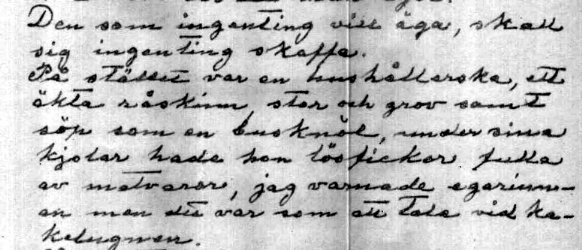 Den som ingenting vill äga, skall
sig ingenting skaffa.
På stället var en hushållerska, ett
äkta råskinn stor och grov samt
söp som en busknöl, under sina
kjolar hade hon lösfickor fulla
av matvaror, jag varnade egarinn-
an men det var som att tala vid ka-
kelugnen.